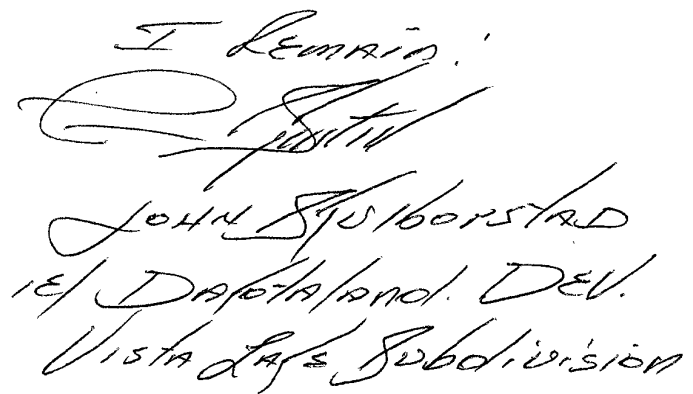 I Remain:
John
ie/ Dakotaland. Dev.
Vista Lake Subdivision